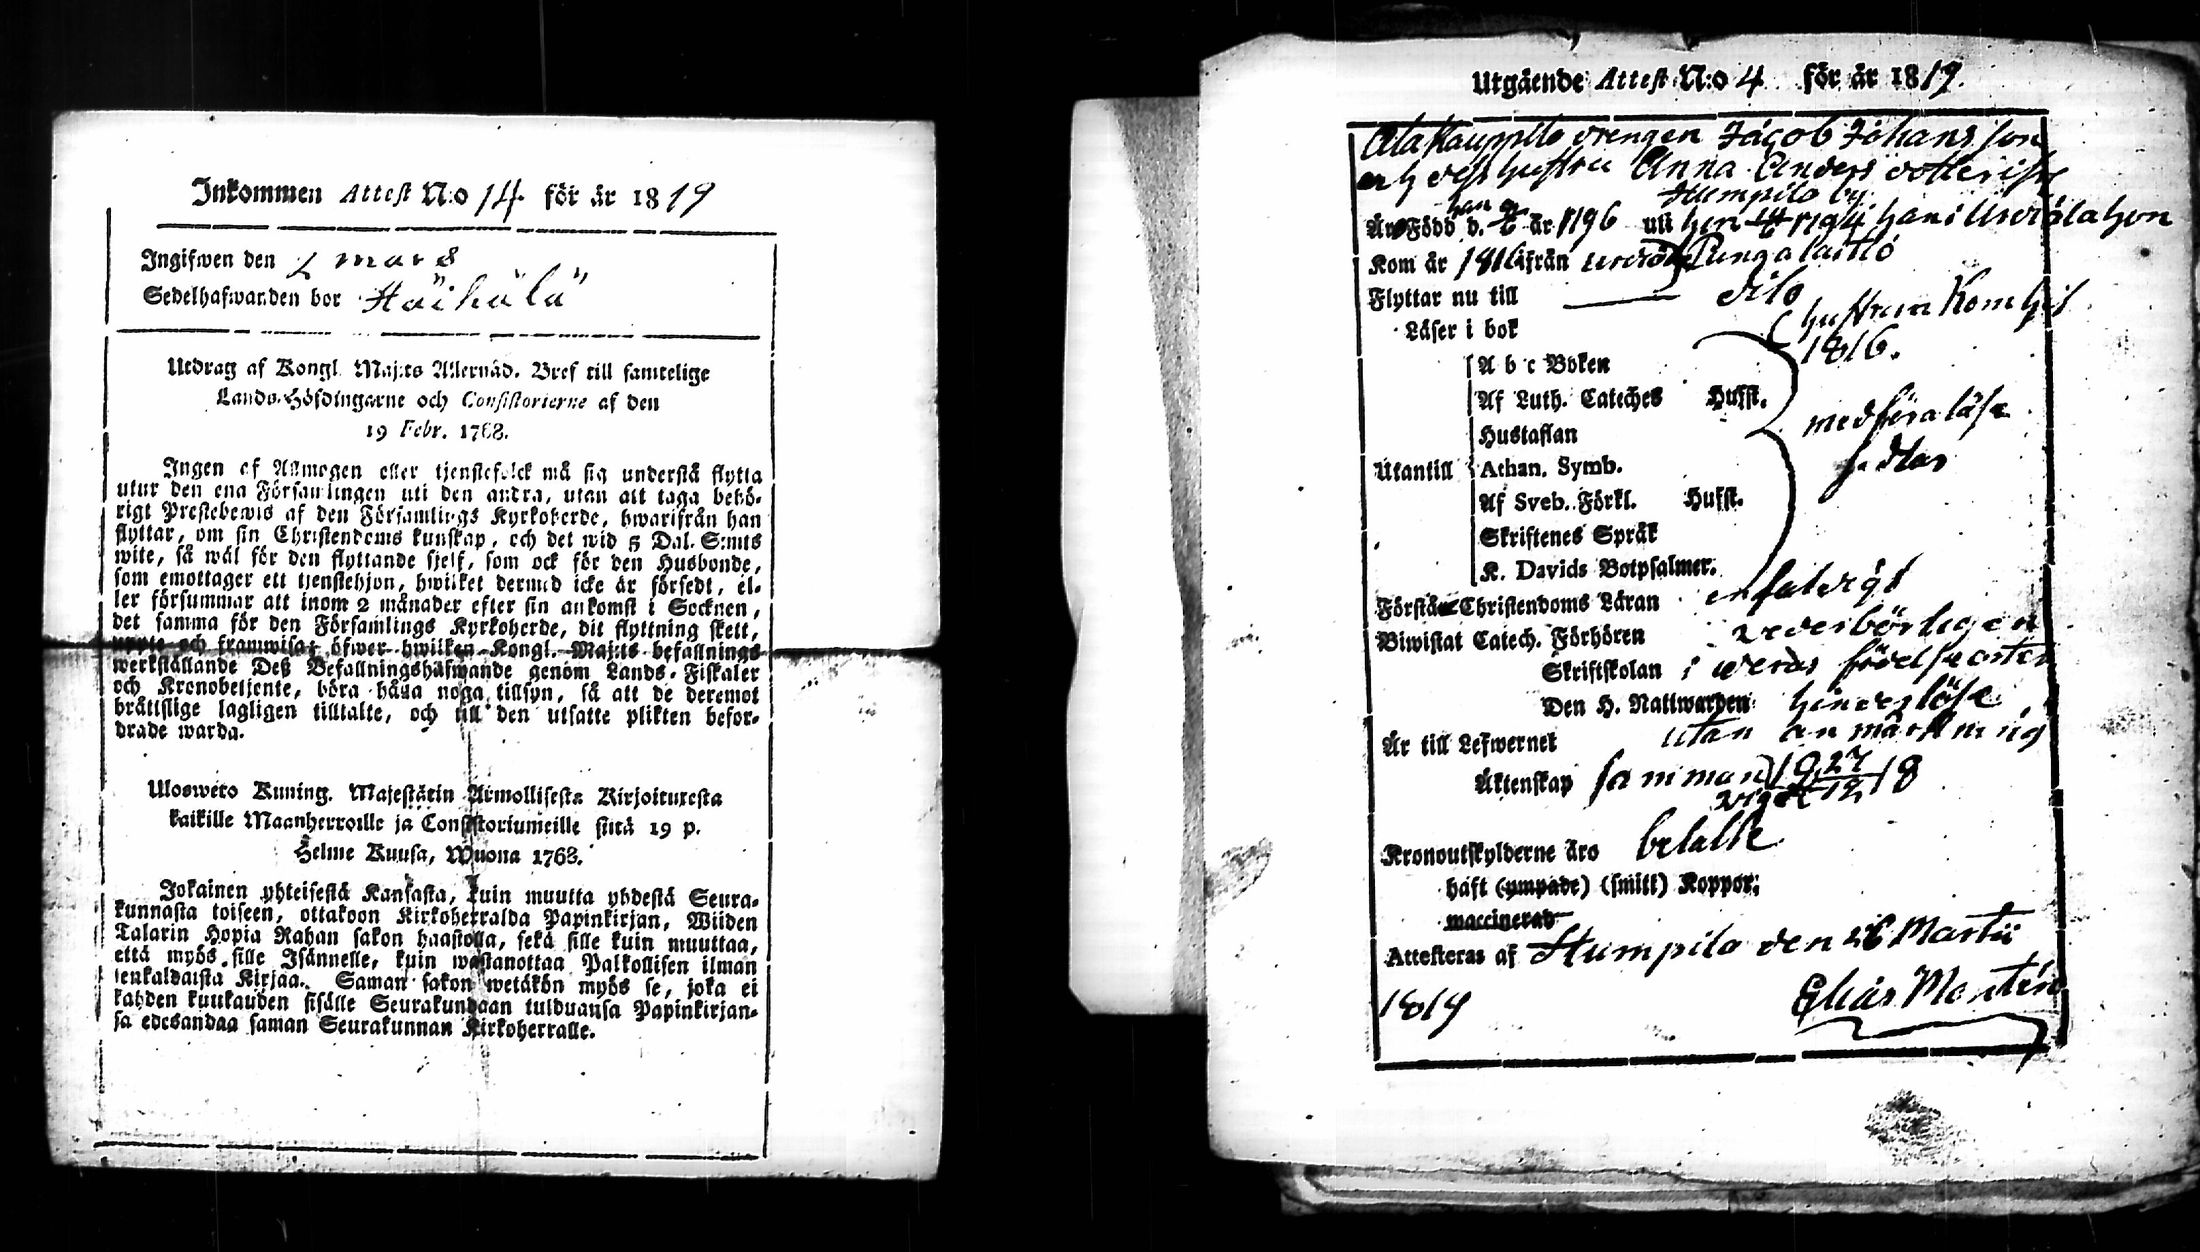 Inkommen Attest N:o 14. för år 1819
Ingifwen den 2 mars
Sedelhafwanden bor Häihälä
Utdrag af Kongl. Maj:ts Allernåd. Bref till samtelige
Lands-Höfdingarne och Consistorierne af den
19 Febr. 1768.
Ingen af Allmogen eller tjenstefolck må sig understå flytta
utur den ena Församlingen uti den andra, utan att taga behö-
rigt Prestebewis af den Församlings Kyrkoherde, hwarifrån han
flyttar, om sin Christendoms kunskap, och det wid 5 Dal. S:mts
wite, så wäl för den flyttande sjelf, som ock för den Husbonde,
som emottager ett tjenstehjon, hwilket dermed icke är försedt, el-
ler försummar att inom 2 månader efter sin ankomst i Socknen,
det samma för den Församlings Kyrkoherde, dit flyttning skett,
uppte och framwisa; öfwer hwilken Kongl. Maj:ts befallnings
werkställande Deß Befallningshafwande genom Lands-Fiskaler
och Kronobetjente, böra hålla noga tillsyn, så att de deremot
bråttslige lagligen tilltalte, och till den utsatte plikten befor-
drade warda.
Ulosweto Kuning. Majestätin Armollisesta Kirjoituxesta
kaikille Maanherroille ja Consistoriumeille siitä 19 p.
Helme Kuusa, Wuona 1768.
Jokainen yhteisestä Kansasta, kuin muutta yhdestä Seura-
kunnasta toiseen, ottakoon Kirkoherralda Papinkirjan, Wiiden
Talarin Hopia Rahan sakon haastolla, sekä sille kuin muuttaa,
että myös sille Isännelle, kuin wastanottaa Palkollisen ilman
senkaldaista Kirjaa. Saman sakon wetäkön myös se, joka ei
kahden kuukauden sisälle Seurakundaan tulduansa Papinkirjan-
sa edesandaa saman Seurakunnan Kirkoherralle.
Utgående Attest N:o 4 för år 1819.
Ala Kauppila drengen Jacob Johansson
och dess hustru Anna Anders dotter ifr
Humpila by
Är Född d. år 1796 uti hon 1794 han i Urdiala hon
Kom år 1816 ifrån Urdiala Punga laitio
Flyttar nu till dito
Läser i bok hustrun Kom hit
1816.
A b c Boken
Af Luth. Cateches Hufst.
Hustaflan medföra läse
Utantill Athan. Symb. sedlar
Af Sveb. Förkl. Hufst.
Skriftenes Språk
K. Davids Botpsalmer.
Förstår Christendoms Läran enfaldigt
Biwistat Catech. Förhören wederbörligen
Skriftskolan i deras födelseorter
Den H. Nattwarden hinderlöse
Är till Lefwernet utan anmärkning
Äktenskap samman
vigde 27/12 18
Kronoutskylderne äro betalte
haft (ympade) (smitt) Koppor;
waccinerad
Attesteras af Humpila den 26 Martii
1819 Elias Montén